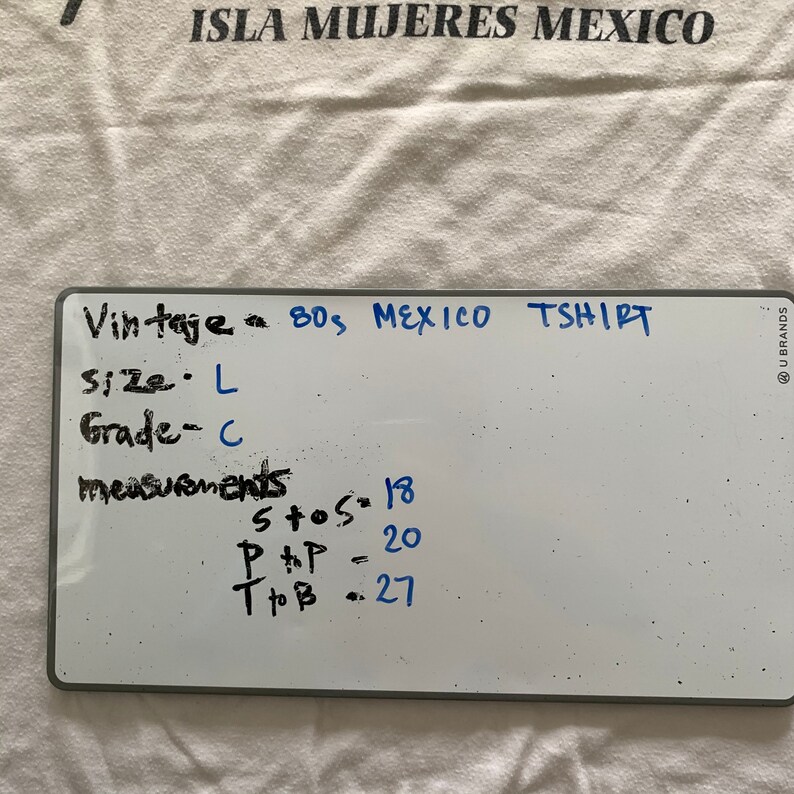 ISLA MUJERES MEXICO
Vintage - 80s MEXICO TSHIRT
size - L
Grade - C
measurments
S to S - 18
P to P - 20
T to B - 27
U BRANDS